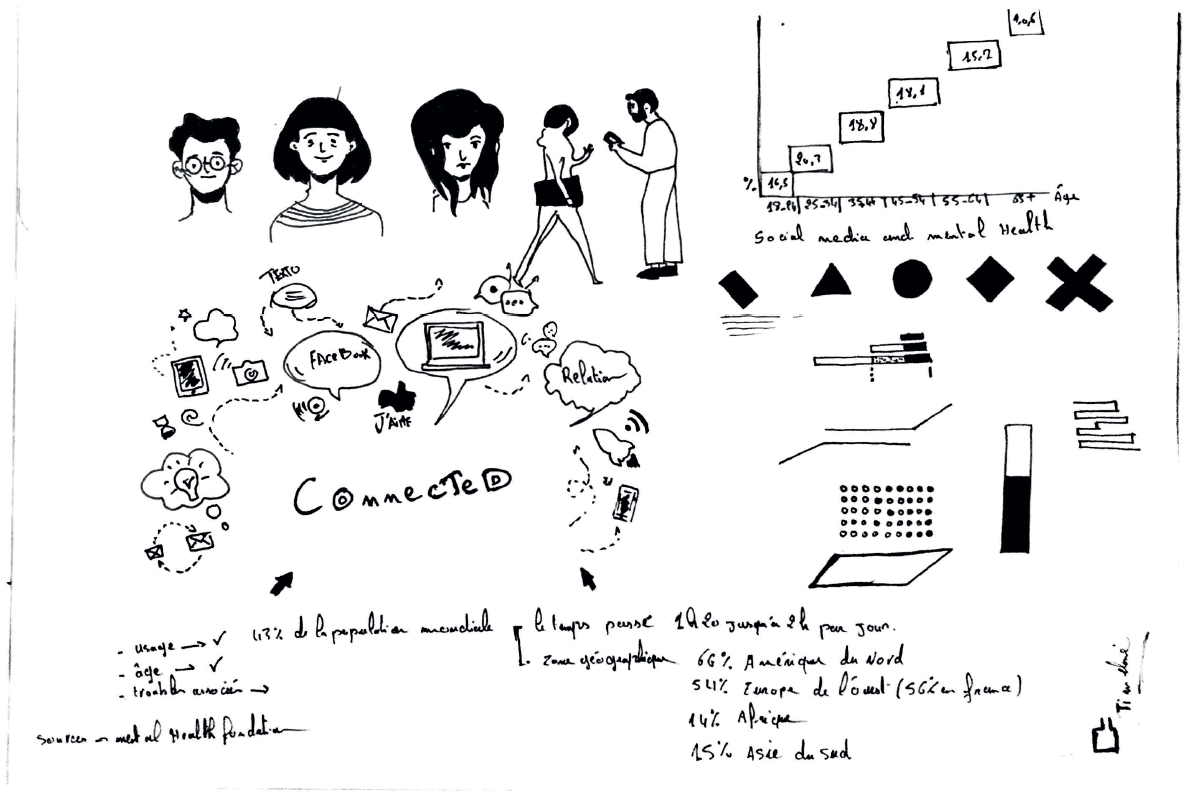 15,2
18,1
18,8
20,7
% 16,5
18-24| 25-34| 35-44 | 45-54 | 55-64| 65+ Âge
Social media and mental Health
TEXTO
FACEBOOK
Relation
J'AIME
CONNECTED
43% de la population mondiale
- usage → ✓
- âge → ✓
- troubles associés →
sources → mental Health foundation
le temps passé 1h20 jusqu'à 2h par jour.
zone géographique
66% Amérique du Nord
54% Europe de l'ouest (56% en france)
14% Afrique
15% Asie du sud